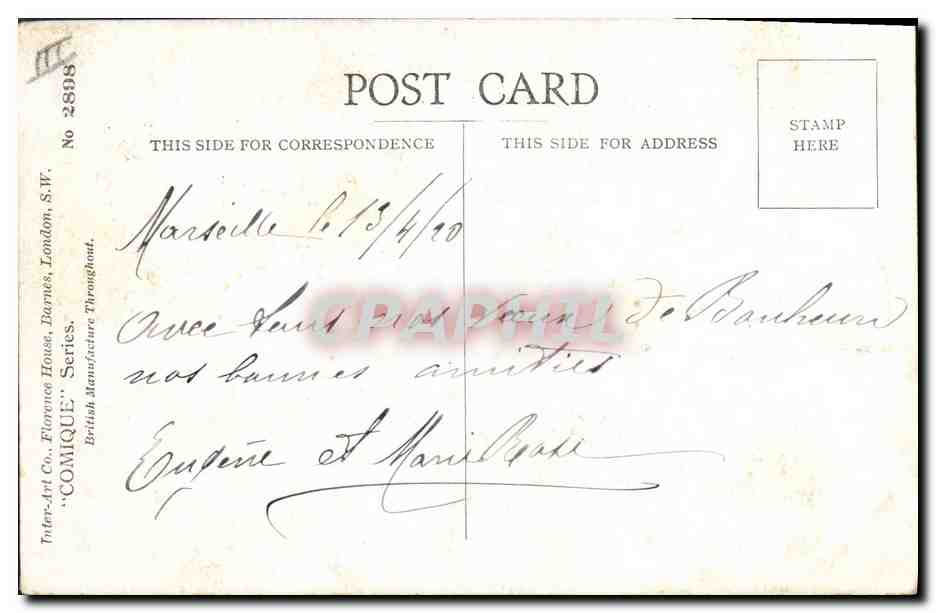 III
No 2898
Inter-Art Co., Florence House, Barnes, London, S.W.
"COMIQUE" Series.
British Manufacture Throughout.
POST CARD
THIS SIDE FOR CORRESPONDENCE
THIS SIDE FOR ADDRESS
STAMP
HERE
Marseille le 13/4/20
Avec tous nos vœux de Bonheur
nos bonnes amitiés
Eugène et Marie Rose
CPAPHIL